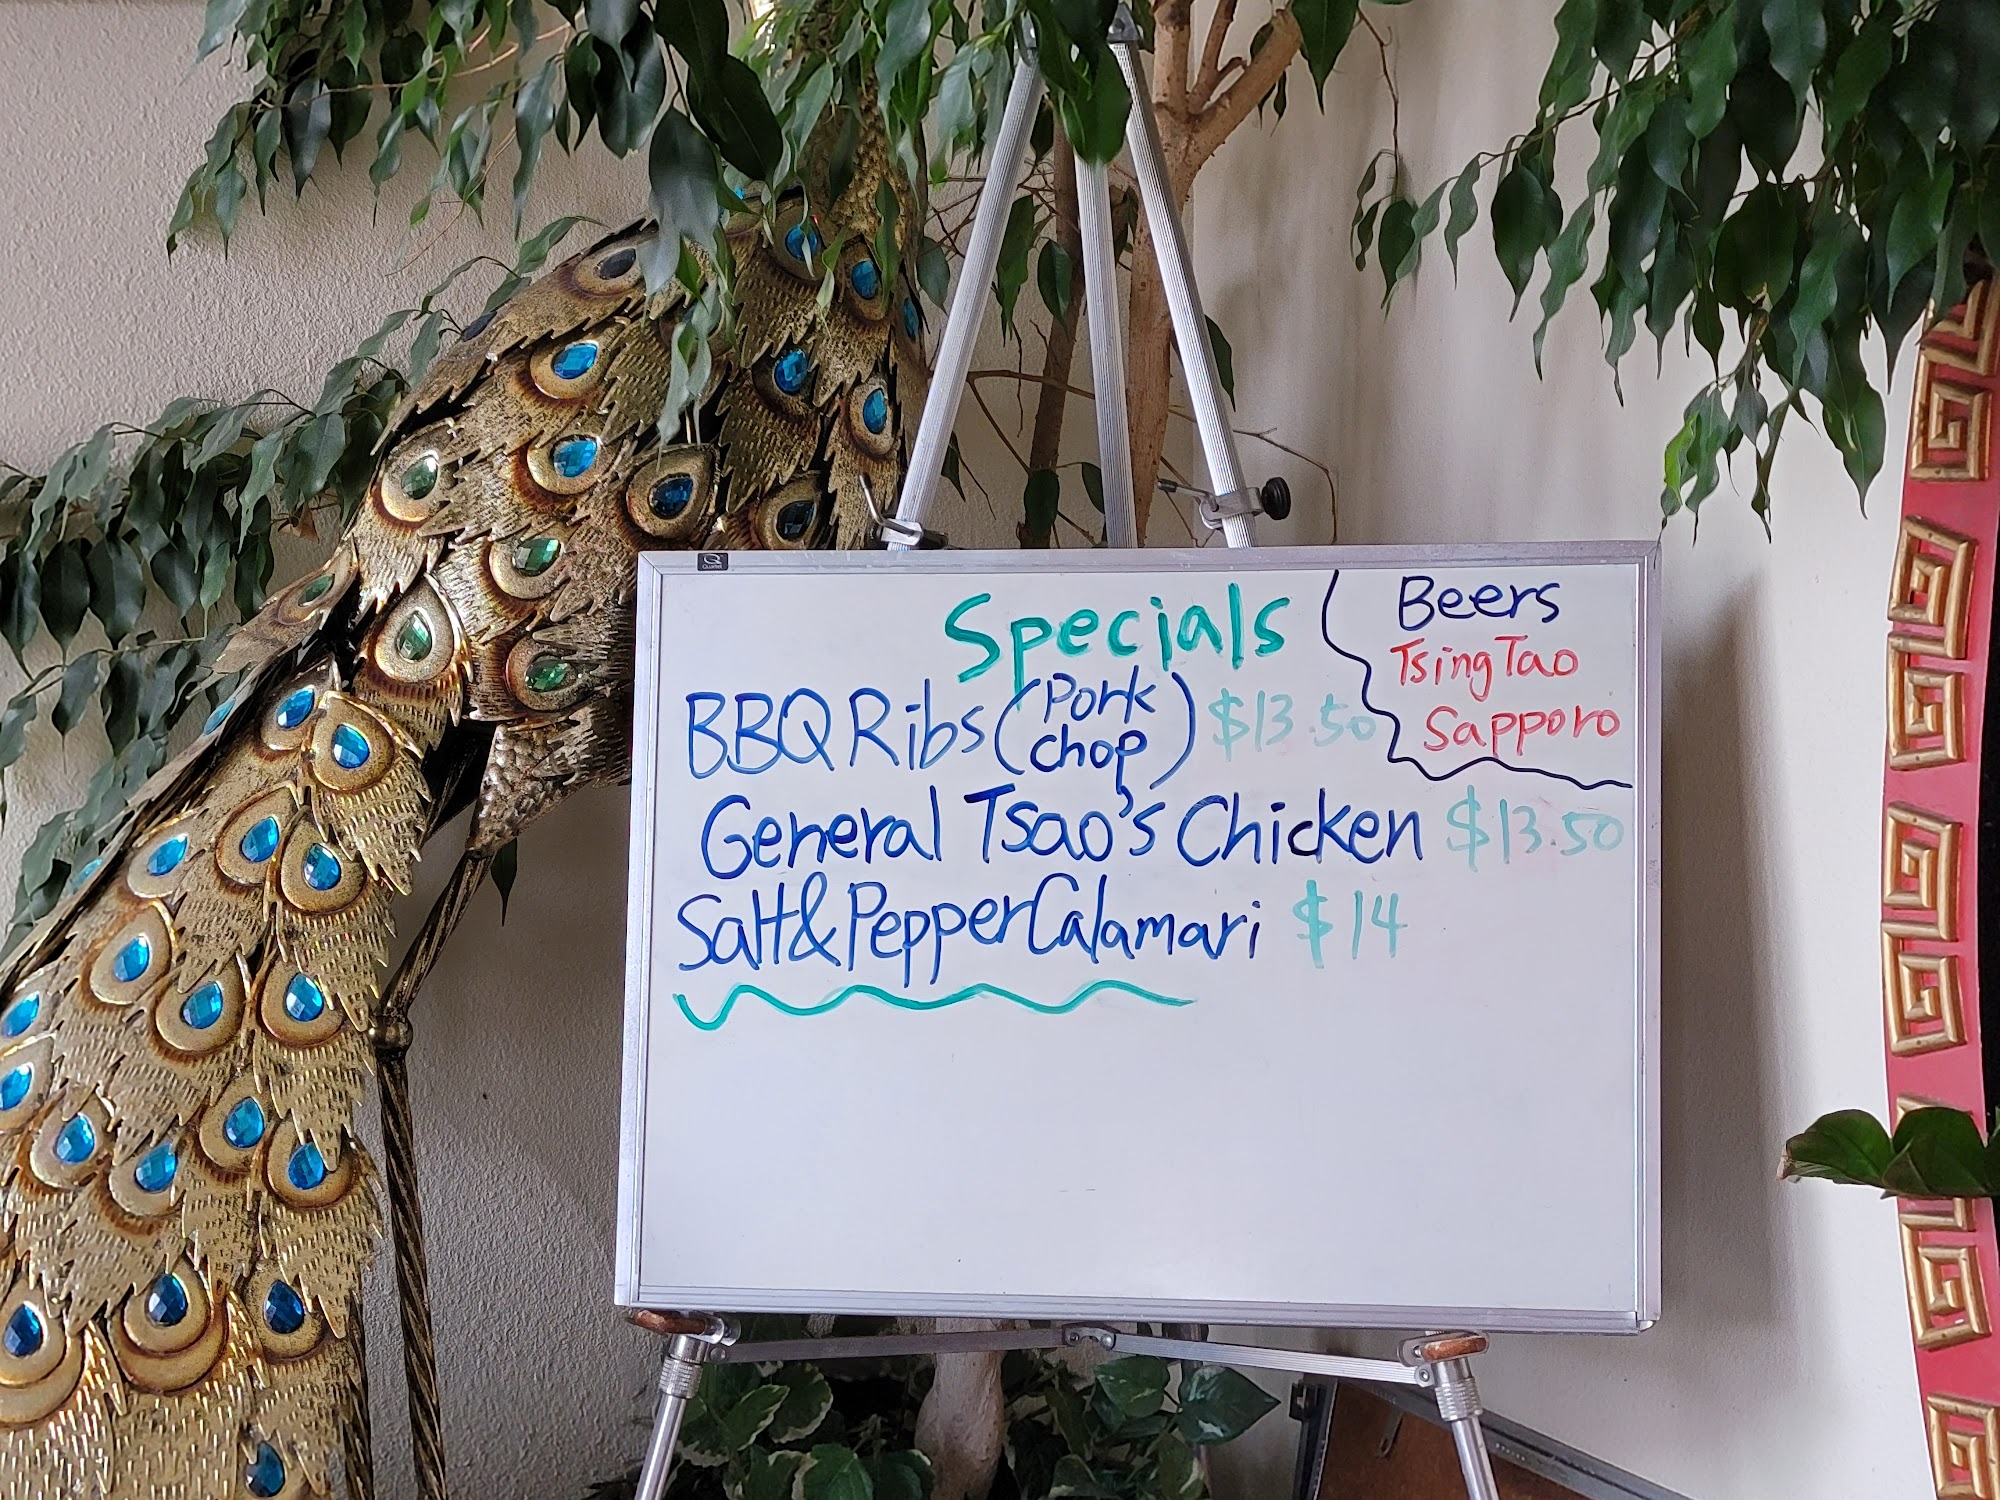 Quartet
Specials
BBQ Ribs (Pork chop) $13.50
General Tsao's Chicken $13.50
Salt & Pepper Calamari $14
Beers
TsingTao
Sapporo